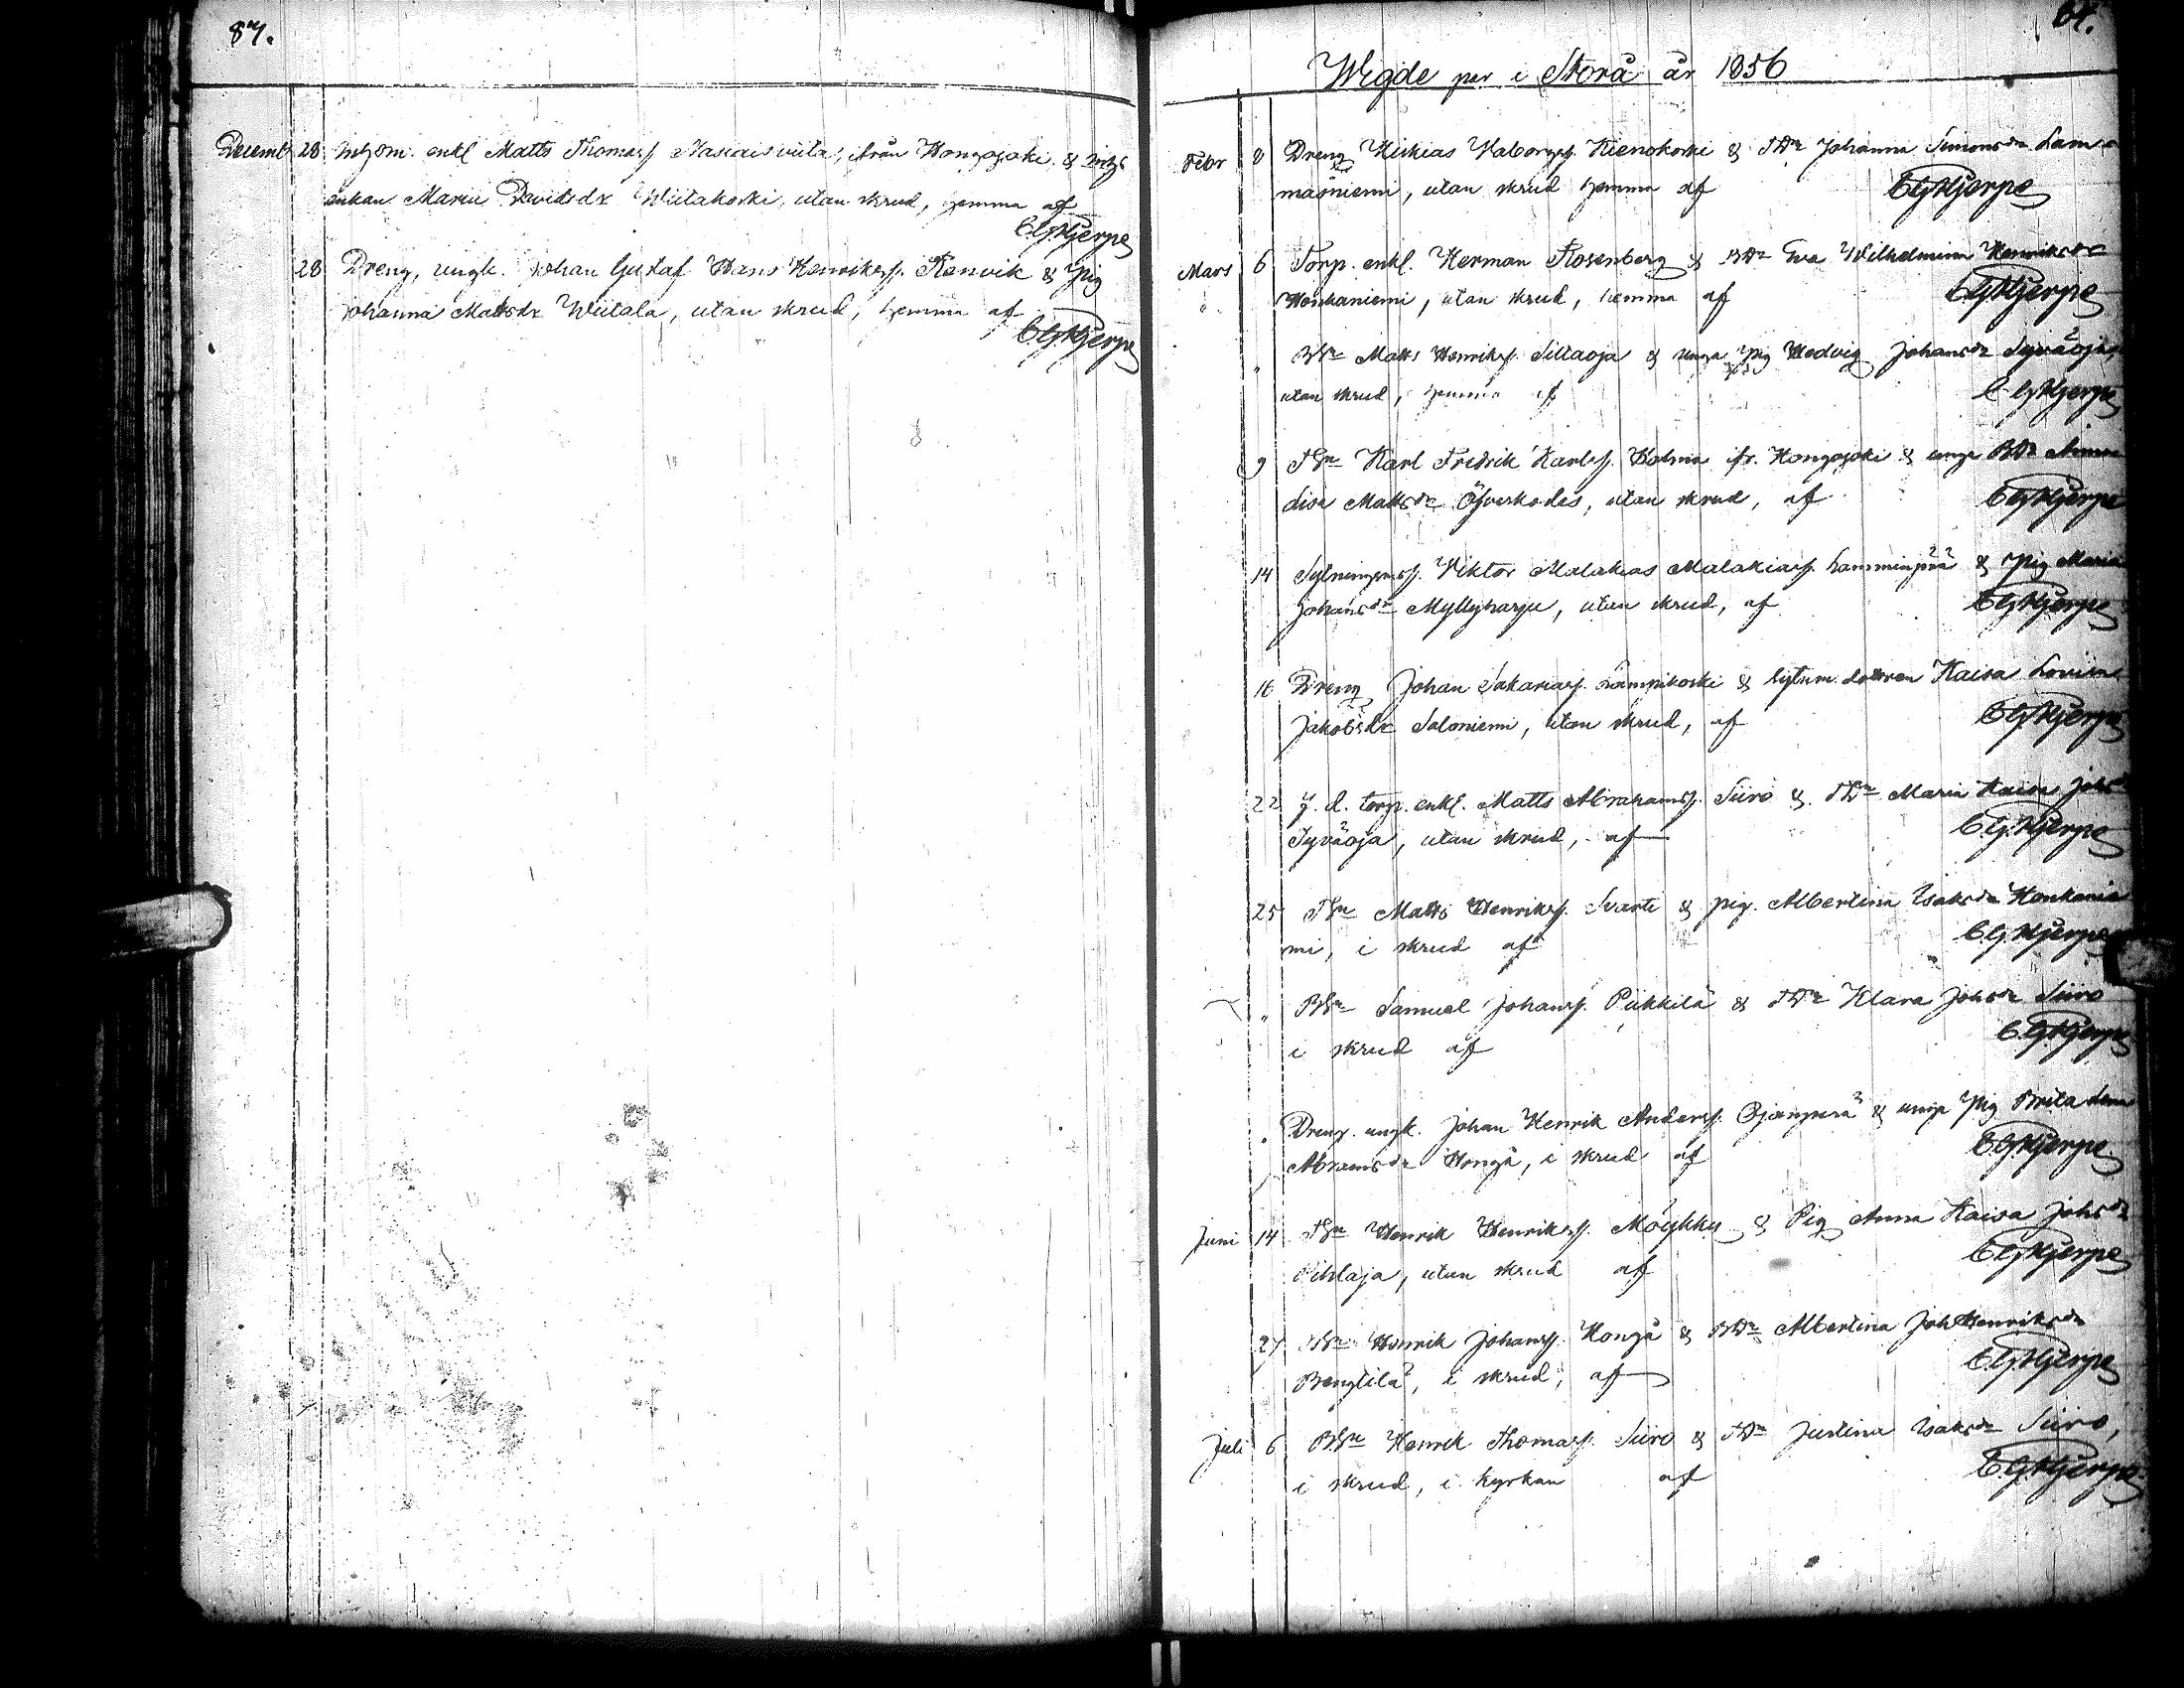 87.
Decemb 28 Inhysm. enkl Matts Thomass. Nasiaisviita, ifrån Hongojoki & Inhys
enkan Maria Davidsdr Wiitakoski, utan skrud, hemma af
CGHjerpe
28 Dreng, ungk. Johan Gustaf Hans Henrikss. Renvik & Pig
Johanna Mattsdr Wiitala, utan skrud, hemma af
CGHjerpe
64.
Wigde par i Storå år 1856
Febr 8 Dreng Hiskias Habor Kienokoski & TDr Johanna Simonsdr Lam-
maöniemi, utan skrud hemma af CGHjerpe
Mars 6 Torp. enkl. Herman Rosenberg & BDr Eva Wilhelmina Henriksdr
Honkaniemi, utan skrud, hemma af CGHjerpe
" " BSn Matts Henrikss. Sillaoja & unga pig Hedvig Johansdr Syväoja,
utan skrud, hemma af CGHjerpe
9 TSn Karl Fredrik Karlss. ifr. Hongojoki & unga BDr Anna
Lisa Mattsdr Öfverkodes, utan skrud, af CGHjerpe
14 Sytningss. Viktor Malakias Malakiass. Lamminpää & Pig Maria
Johansdr Myllyharju, utan skrud, af CGHjerpe
16 Dreng Johan Sakariass. Lämpikoski & dottren Kaisa Lovisa
Jakobsdr Saloniemi, utan skrud, af CGHjerpe
22 f. d. torp. enkl. Matts Abrahamss. Siiro & TDr Maria Kaisa Johsdr
Syväoja, utan skrud, af CGHjerpe
25 TSn Matts Henrikss. Svarti & pig. Albertina Isaksdr Honkanie
mi, i skrud af CGHjerpe
" BSn Samuel Johanss. Piikkilä & TDr Klara Johsdr Siiro
i skrud af CGHjerpe
" Dreng. ungk. Johan Henrik Anderss. Ojanperä & unga Pig Brita Lena
Abramsdr Hongå, i skrud af CGHjerpe
Juni 14 TSn Henrik Henrikss. Möykky & Pig Anna Kaisa Johsdr
Pihlaja, utan skrud af CGHjerpe
27 BSn Henrik Johanss. Hongå & BDr Albertina Joh Henriksdr
Bengtilä, i skrud, af CGHjerpe
Juli 6 BSn Henrik Thomass. Siiro & TDr Justina Isaksdr Siiro,
i skrud, i kyrkan af CGHjerpe